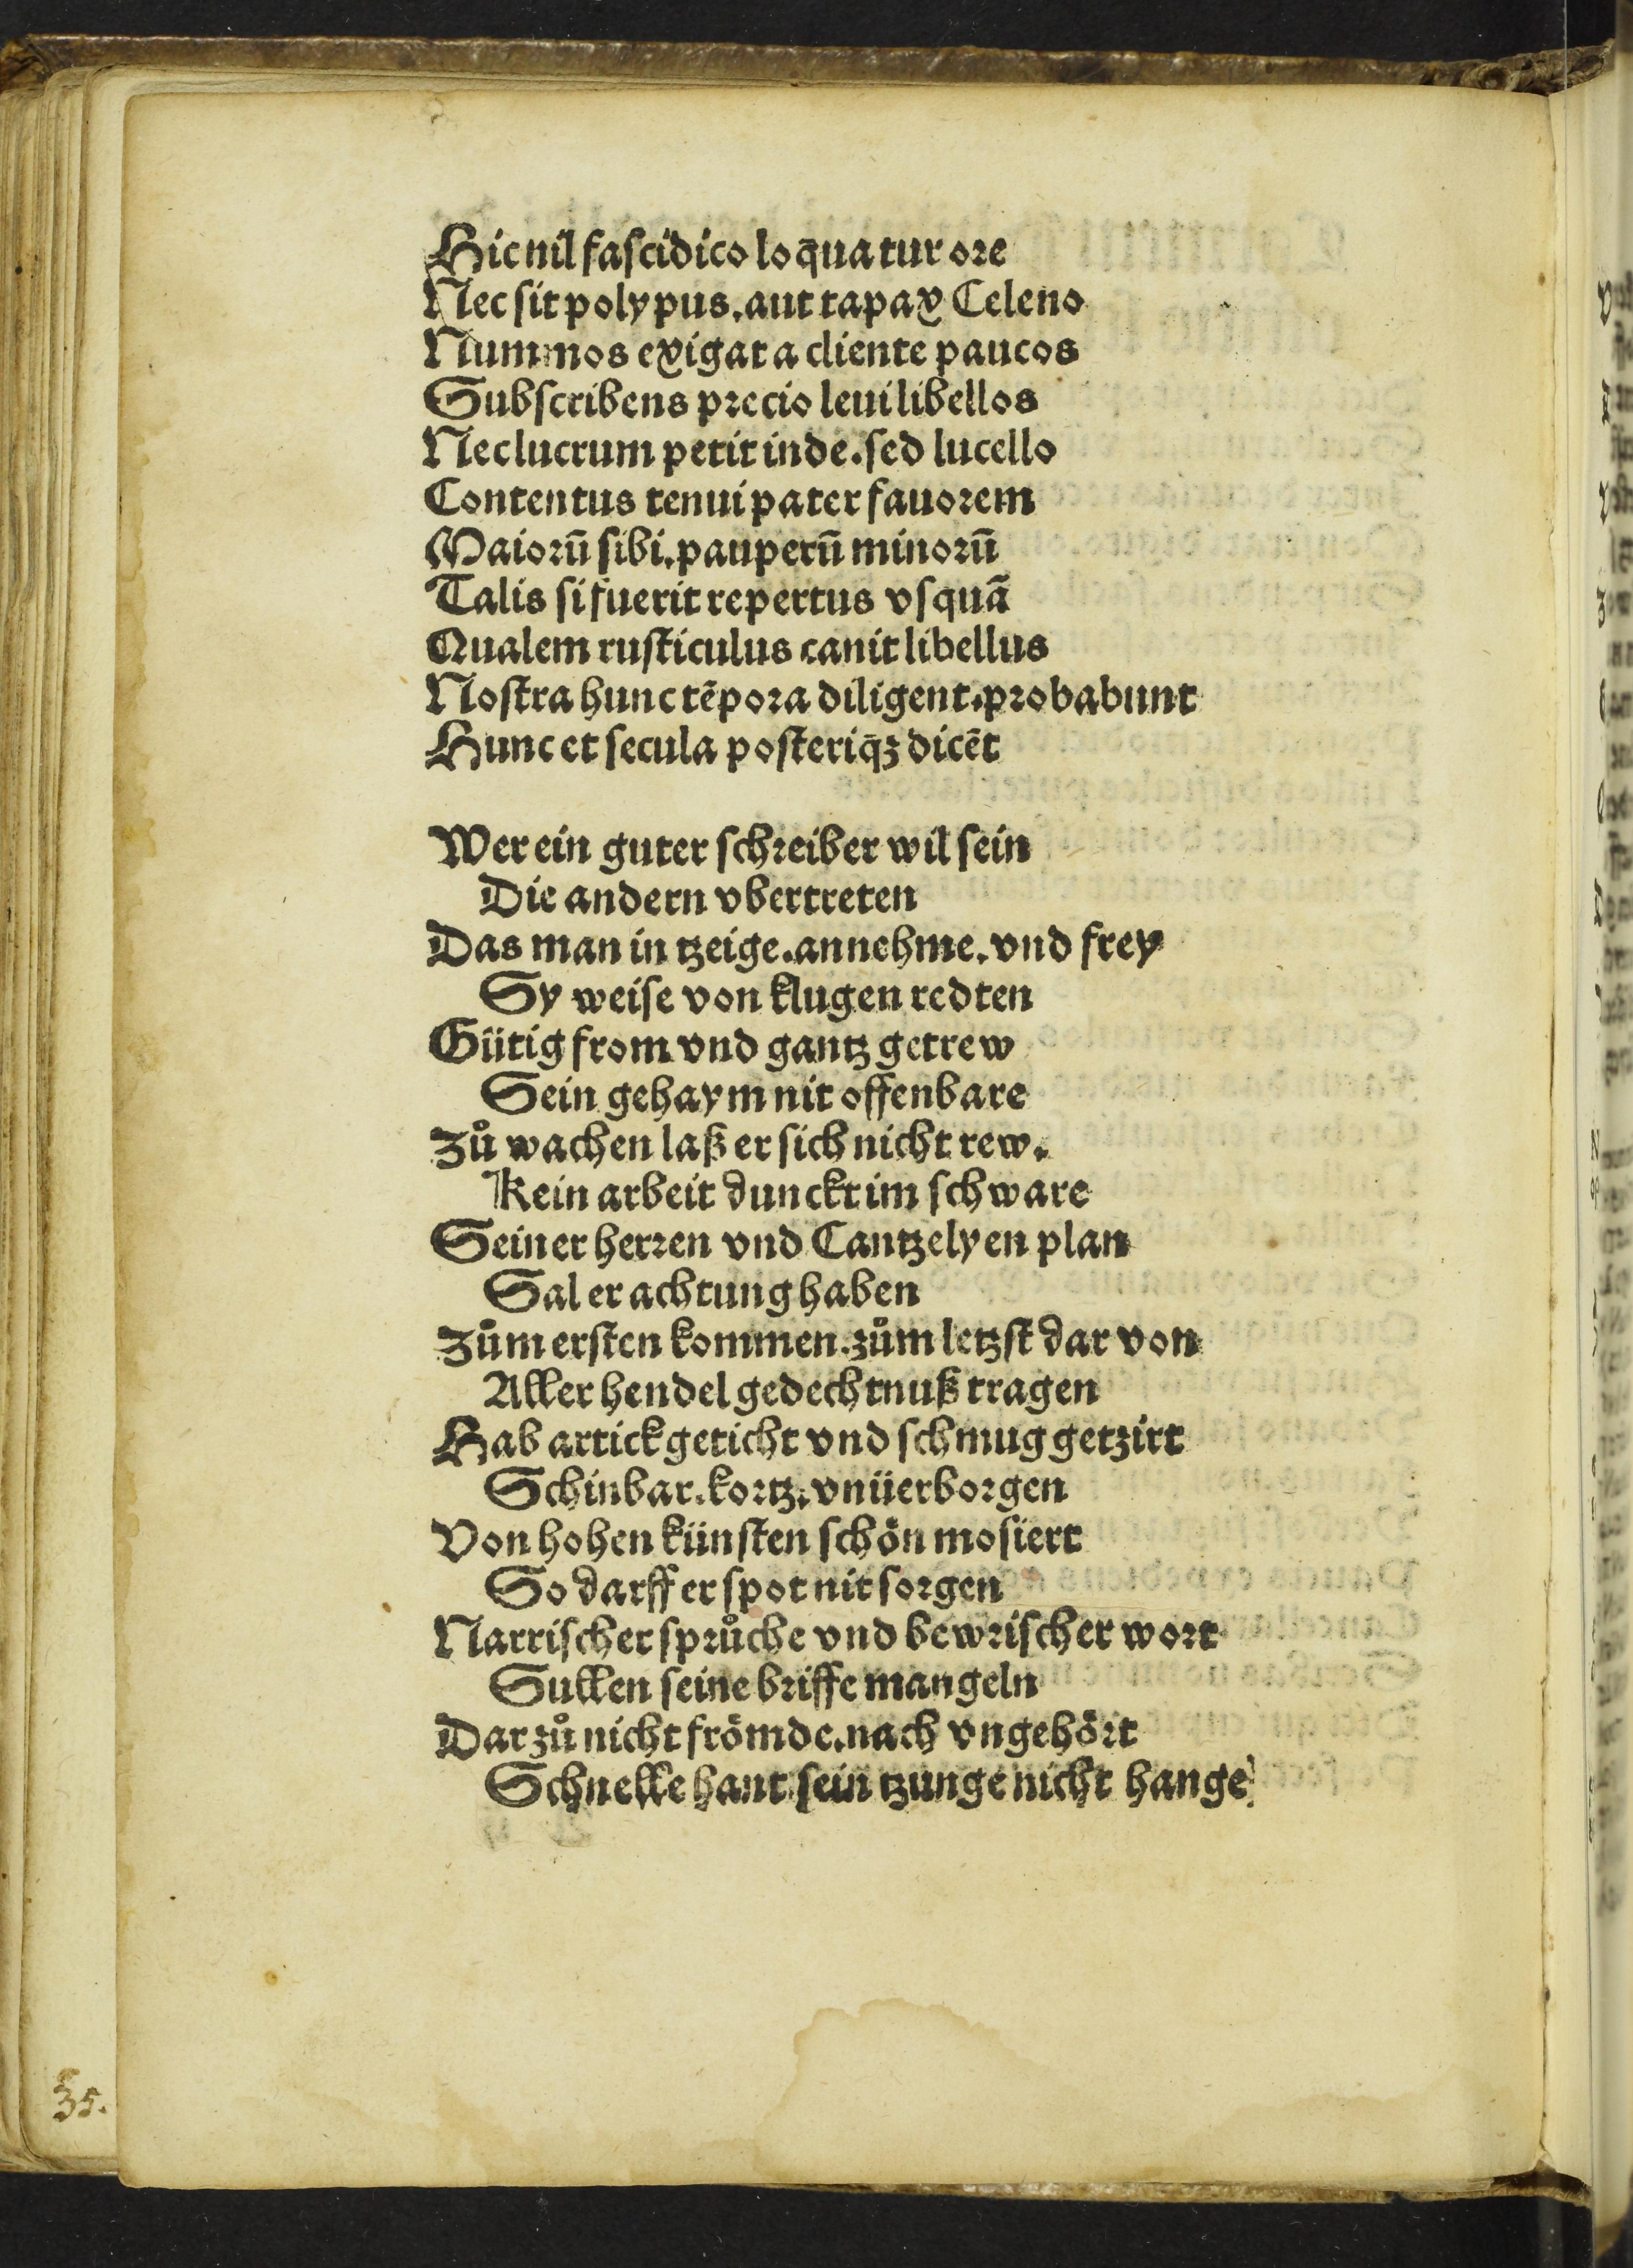 Hic nil fascidico loq̄uatur ore
Nec sit polypus. aut rapax Celeno
Nummos exigat a cliente paucos
Subscribens precio leui libellos
Nec lucrum petit inde. sed lucello
Contentus tenui pater fauorem
Maiorū sibi. pauperū minorū
Talis si fuerit repertus vsquā
Qualem rusticulus canit libellus
Nostra hunc tēpora diligent. probabunt
Hunc et secula posteriq̄ꝫ dicēt

Wer ein guter schreiber wil sein
Die andern vbertreten
Das man in tzeige. annehme. vnd frey
Sy weise von klugen redten
Gütig from vnd gantz getrew
Sein gehaym nit offenbare
Zů wachen laß er sich nicht rew.
Kein arbeit dunckt im schware
Seiner herren vnd Cantzelyen plan
Sal er achtung haben
Zům ersten kommen. zům letzst dar von
Aller hendel gedechtnuß tragen
Hab artick geticht vnd schmug getzirt
Schinbar. kortz. vnüerborgen
Von hohen künsten schön mosiert
So darff er spot nit sorgen
Narrischer sprůche vnd bewrischer wort
Sullen seine briffe mangeln
Dar zů nicht frömde. nach vngehört
Schnelle hant sein tzunge nicht hange
35.